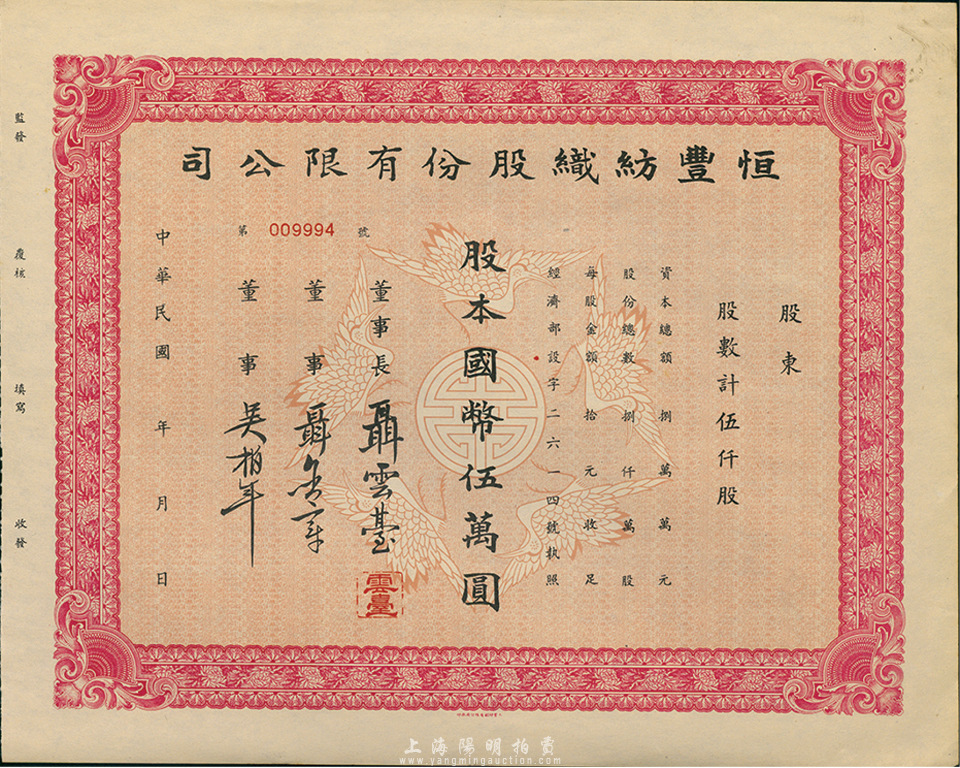 恒豐紡織股份有限公司
股東
股數計伍仟股
資本總額 捌萬萬元
股份總數 捌仟萬股
每股金額 拾元收足
經濟部設字二六一四號執照
股本國幣伍萬圓
第 009994 號
董事長 聶雲臺
雲臺
董事 聶
董事 吳柏年
中華民國 年 月 日
監發
覆核
填寫
收發
上海陽明拍賣
www.yangmingauction.com